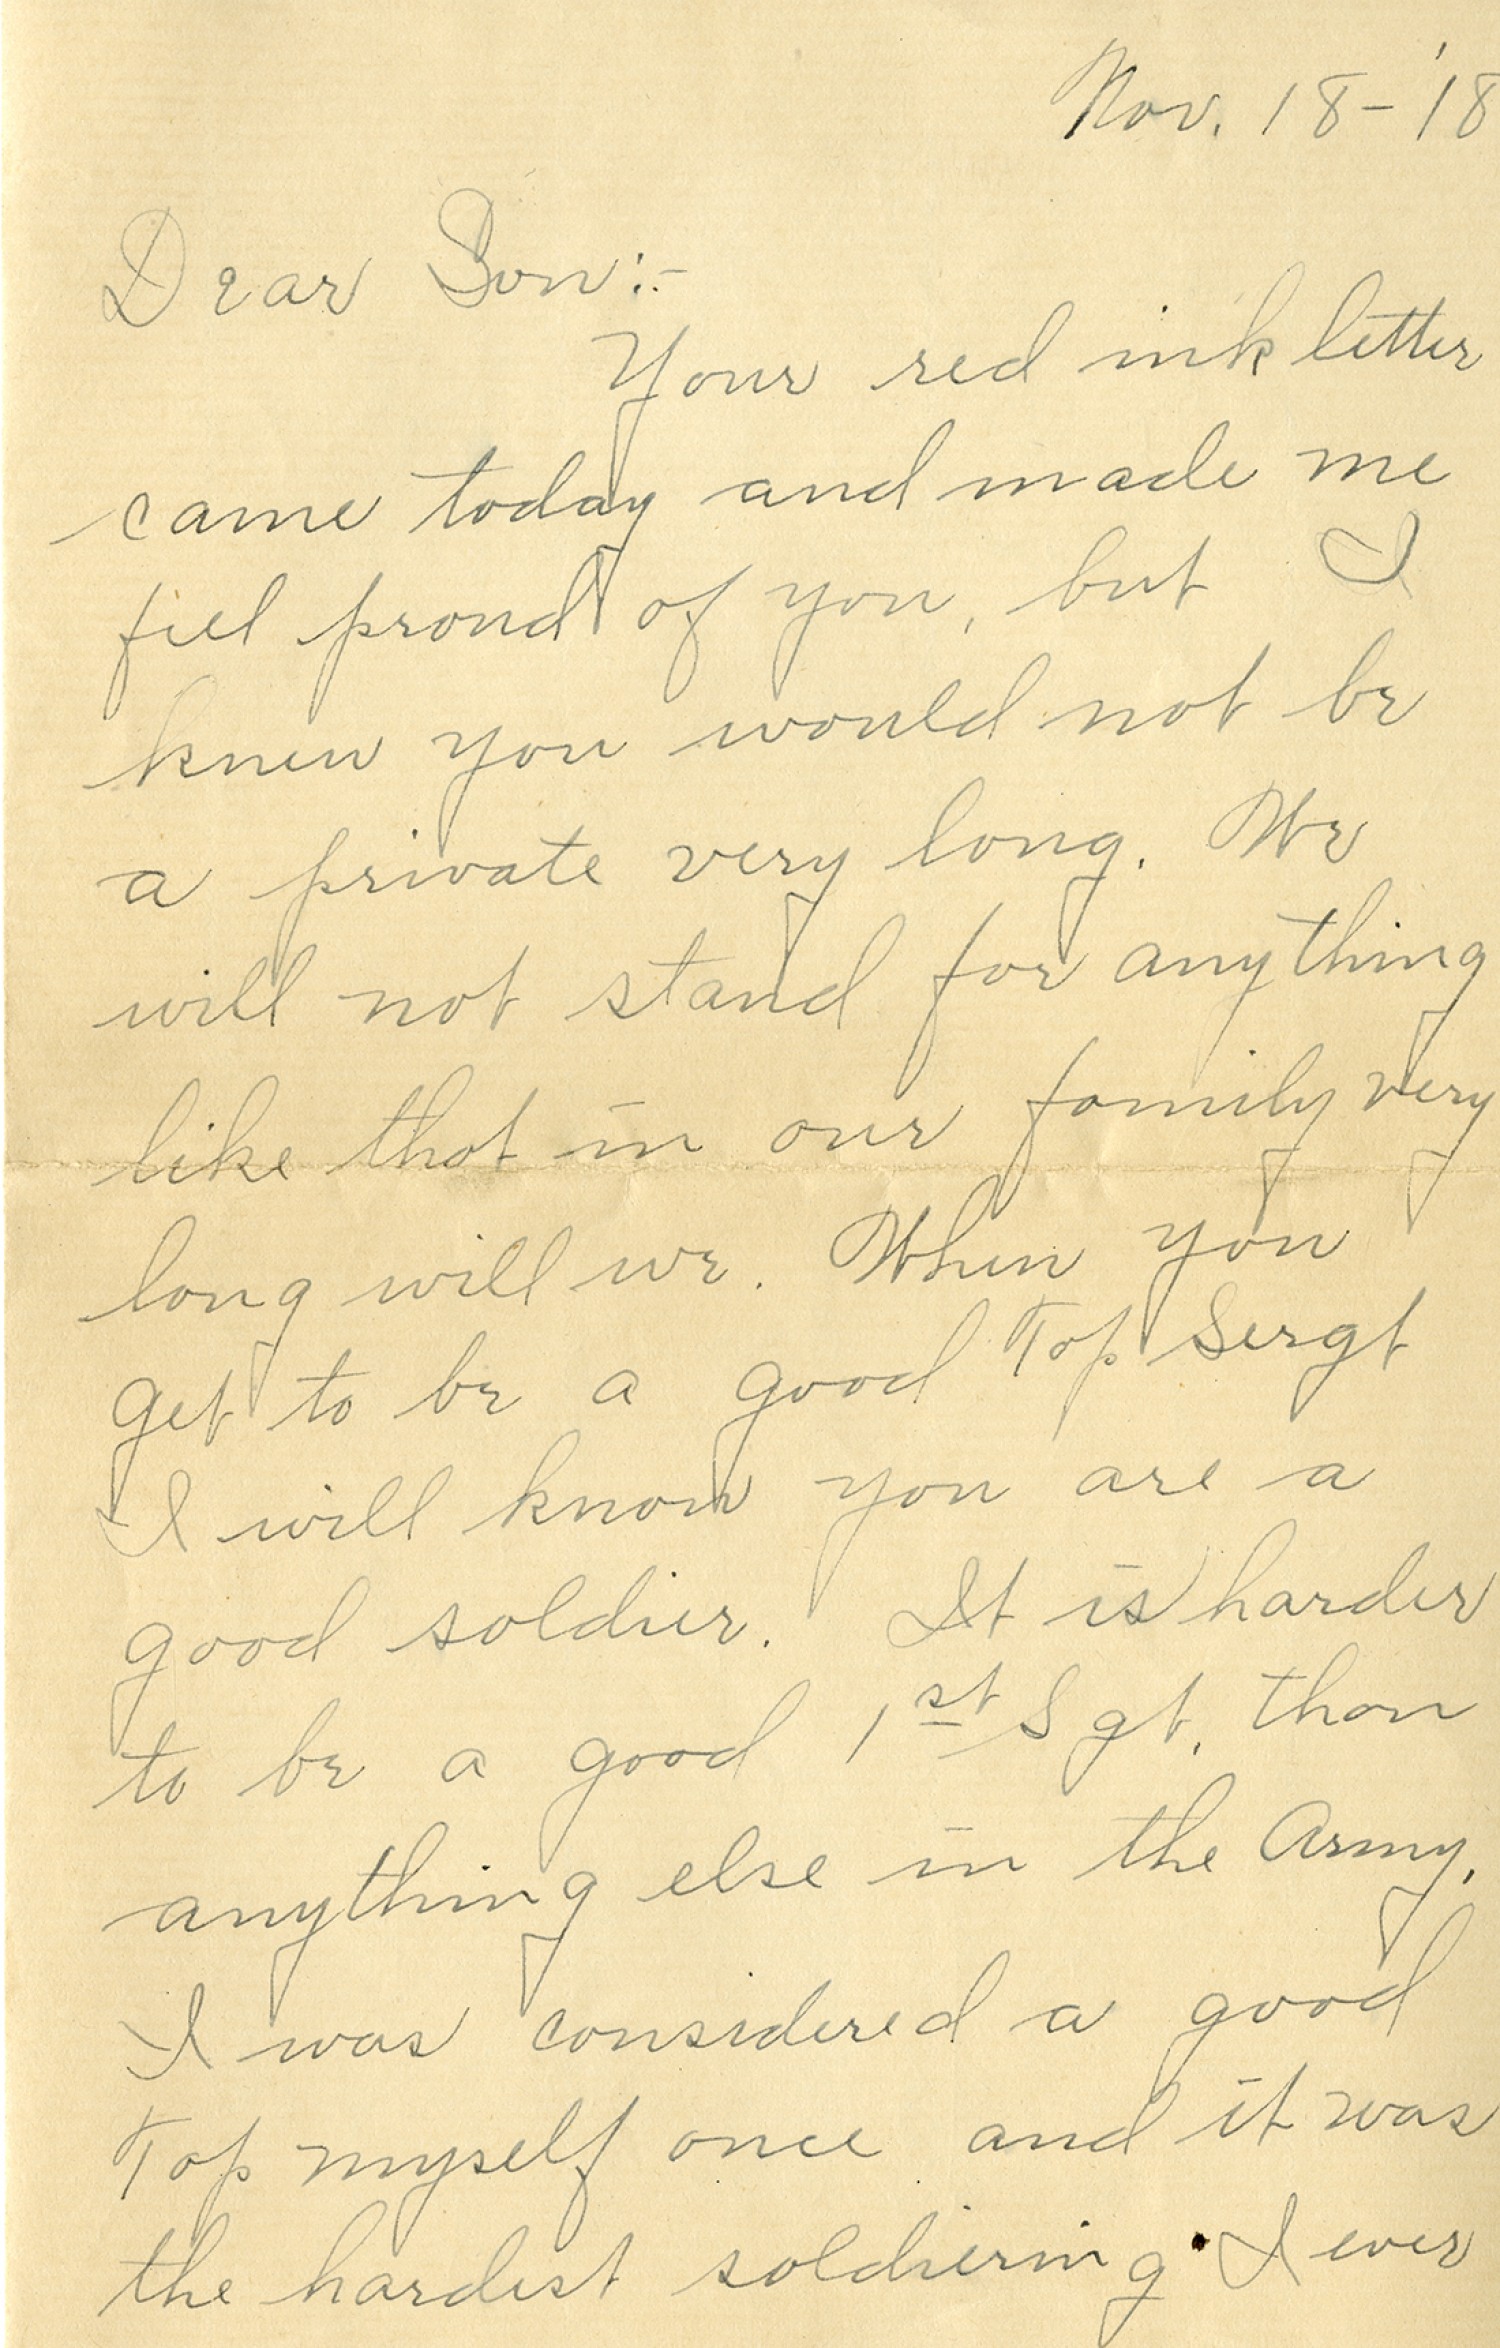 Nov. 18 - '18
Dear Son:-
Your red ink letter
came today and made me
feel proud of you, but I
knew you would not be
a private very long. We
will not stand for anything
like that in our family very
long will we. When you
get to be a good Top Sergt
I will know you are a
good soldier. It is harder
to be a good 1st Sgt. than
anything else in the Army.
I was considered a good
Top myself once and it was
the hardest soldiering I ever